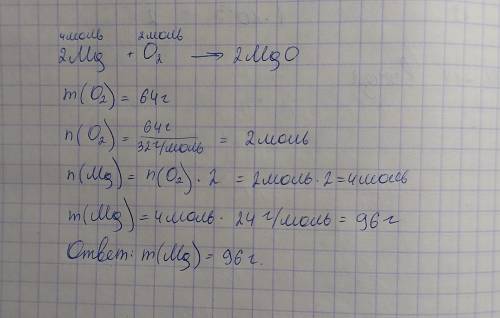 4моль 2моль
2Mg + O₂ → 2MgO
m(O₂) = 64г
n(O₂) = 64г / 32г/моль = 2моль
n(Mg) = n(O₂) · 2 = 2моль · 2 = 4моль
m(Mg) = 4моль · 24 г/моль = 96 г
Ответ: m(Mg) = 96 г.